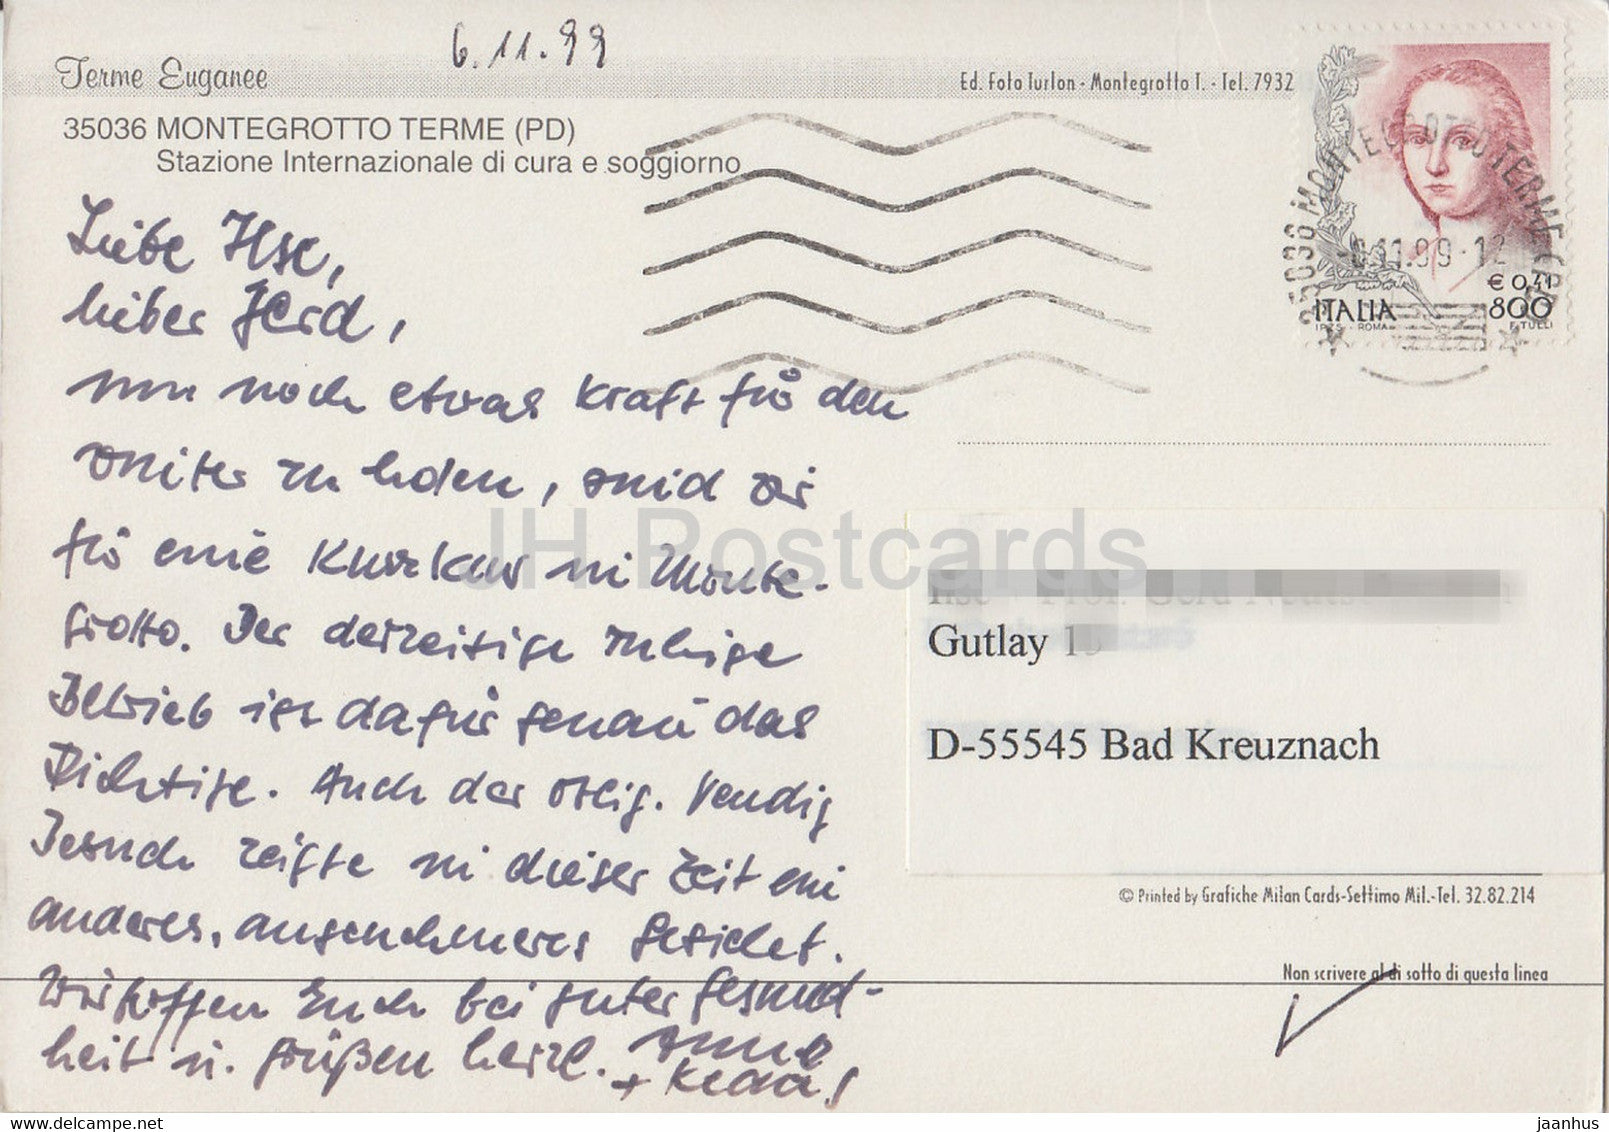 6.11.99
Terme Euganee
Ed. Foto Turlon - Montegrotto T. - Tel. 7932
35036 MONTEGROTTO TERME (PD)
Stazione Internazionale di cura e soggiorno
35036 MONTEGROTTO TERME
11.99-12
€ 0,41
ITALIA 800
I.P.Z.S. - ROMA F. TULLI
Liebe Ilse,
lieber Gerd,
um noch etwas Kraft für den
Winter zu holen, sind wir
für eine Kurzkur in Monte-
grotto. Der derzeitige ruhige
Betrieb ist dafür genau das
Richtige. Auch der Venedig
Besuch zeigte in dieser Zeit ein
anderes, angenehmeres Gesicht.
Wir hoffen Euch bei guter Gesund-
heit u. grüßen herzl.
+ Klaus
JH Postcards
Gutlay 1
D-55545 Bad Kreuznach
© Printed by Grafiche Milan Cards-Settimo Mil.-Tel. 32.82.214
Non scrivere al di sotto di questa linea
www.delcampe.net
jaanhus